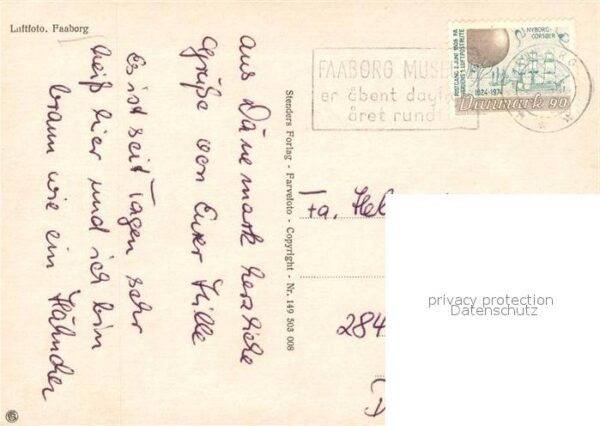 Luftfoto. Faaborg
Aus Dänemark herzliche
Grüße von Eurer Hille
Es ist seit Tagen sehr
heiß hier und ich bin
braun wie ein Hähnchen
Stenders Forlag - Farvefoto - Copyright - Nr. 149 503 008
FAABORG
er åbent
året rundt
NYBORG-
KORSØR
1824-1974
Danmark 90
Fa.
284
privacy protection
Datenschutz